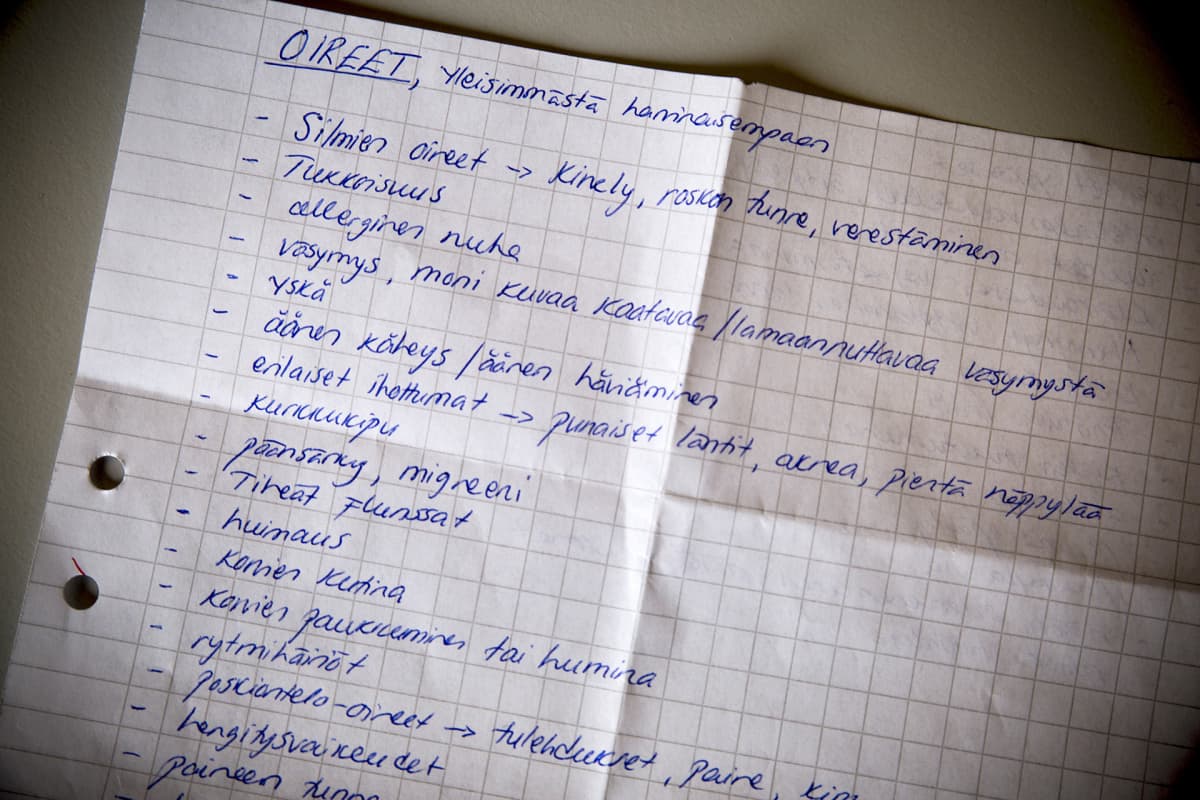 OIREET, yleisimmästä harvinaisempaan
- Silmien oireet → Kirvely, roskan tunne, verestäminen
- Tukkoisuus
- allerginen nuha
- väsymys, moni kuvaa kaatavaa/lamaannuttavaa väsymystä
- Yskä
- äänen käheys/äänen häviäminen
- erilaiset ihottumat → punaiset läntit, aknea, pientä näppylää
- kurkkukipu
- päänsärky, migreeni
- Tiheät Flunssat
- huimaus
- korvien kutina
- korvien paukkuminen tai humina
- rytmihäiriöt
- poskiontelo-oireet → tulehdukset, paine,
- hengitysvaikeudet
- paineen tunne